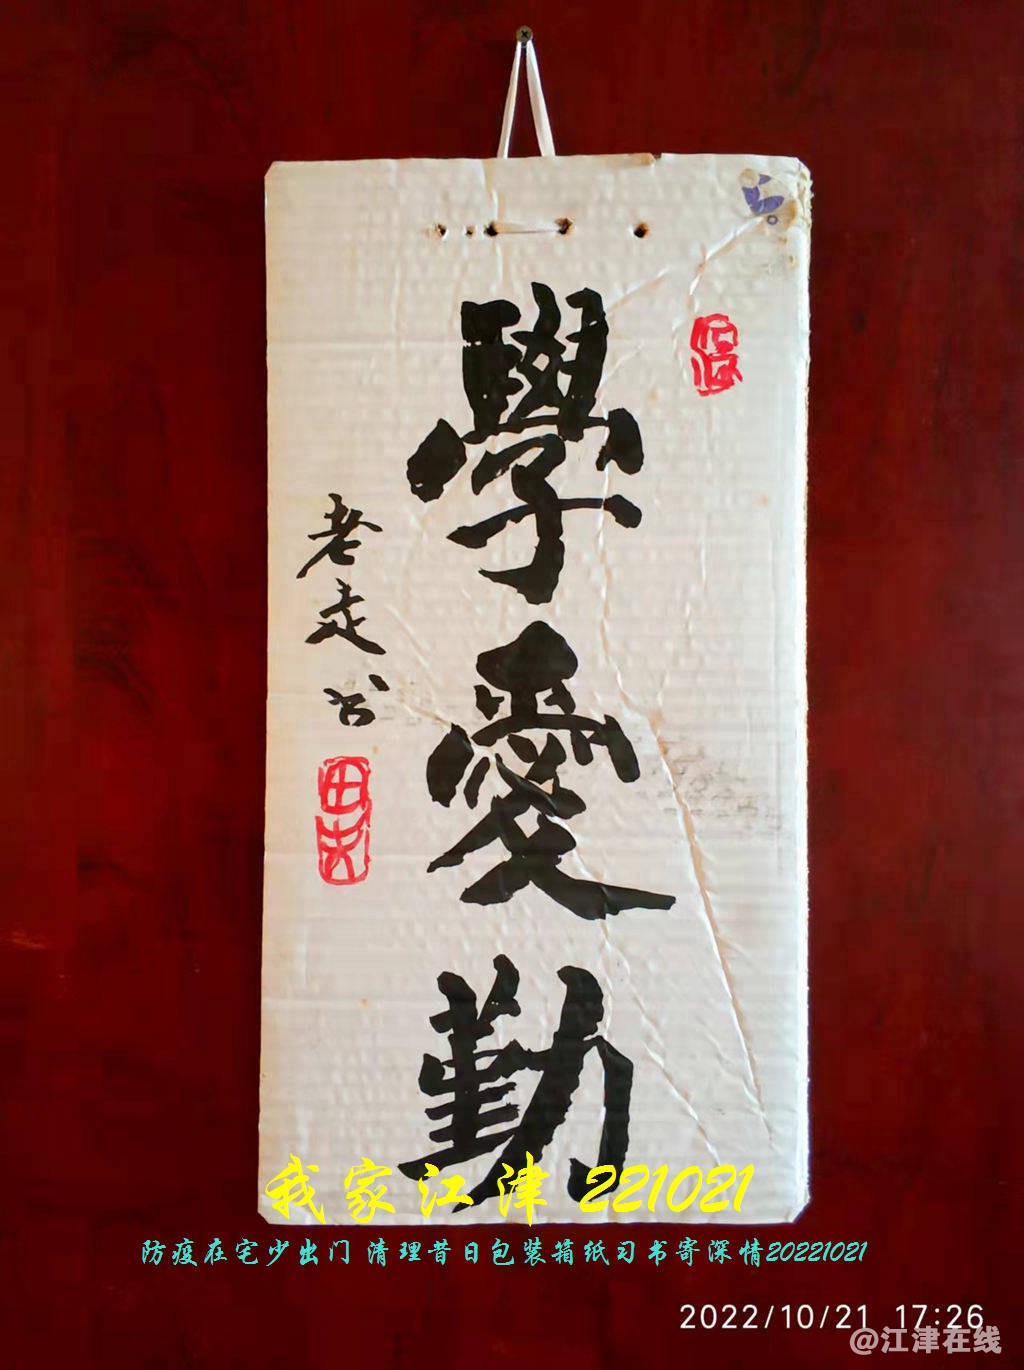 學愛勤
老走书
田夫
我家江津 221021
防疫在宅少出门 清理昔日包装箱纸习书寄深情20221021
2022/10/21 17:26
@江津在线